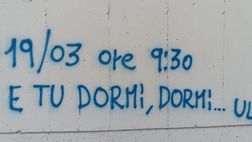 19/03 ore 9:30
E TU DORMi, DORMi...